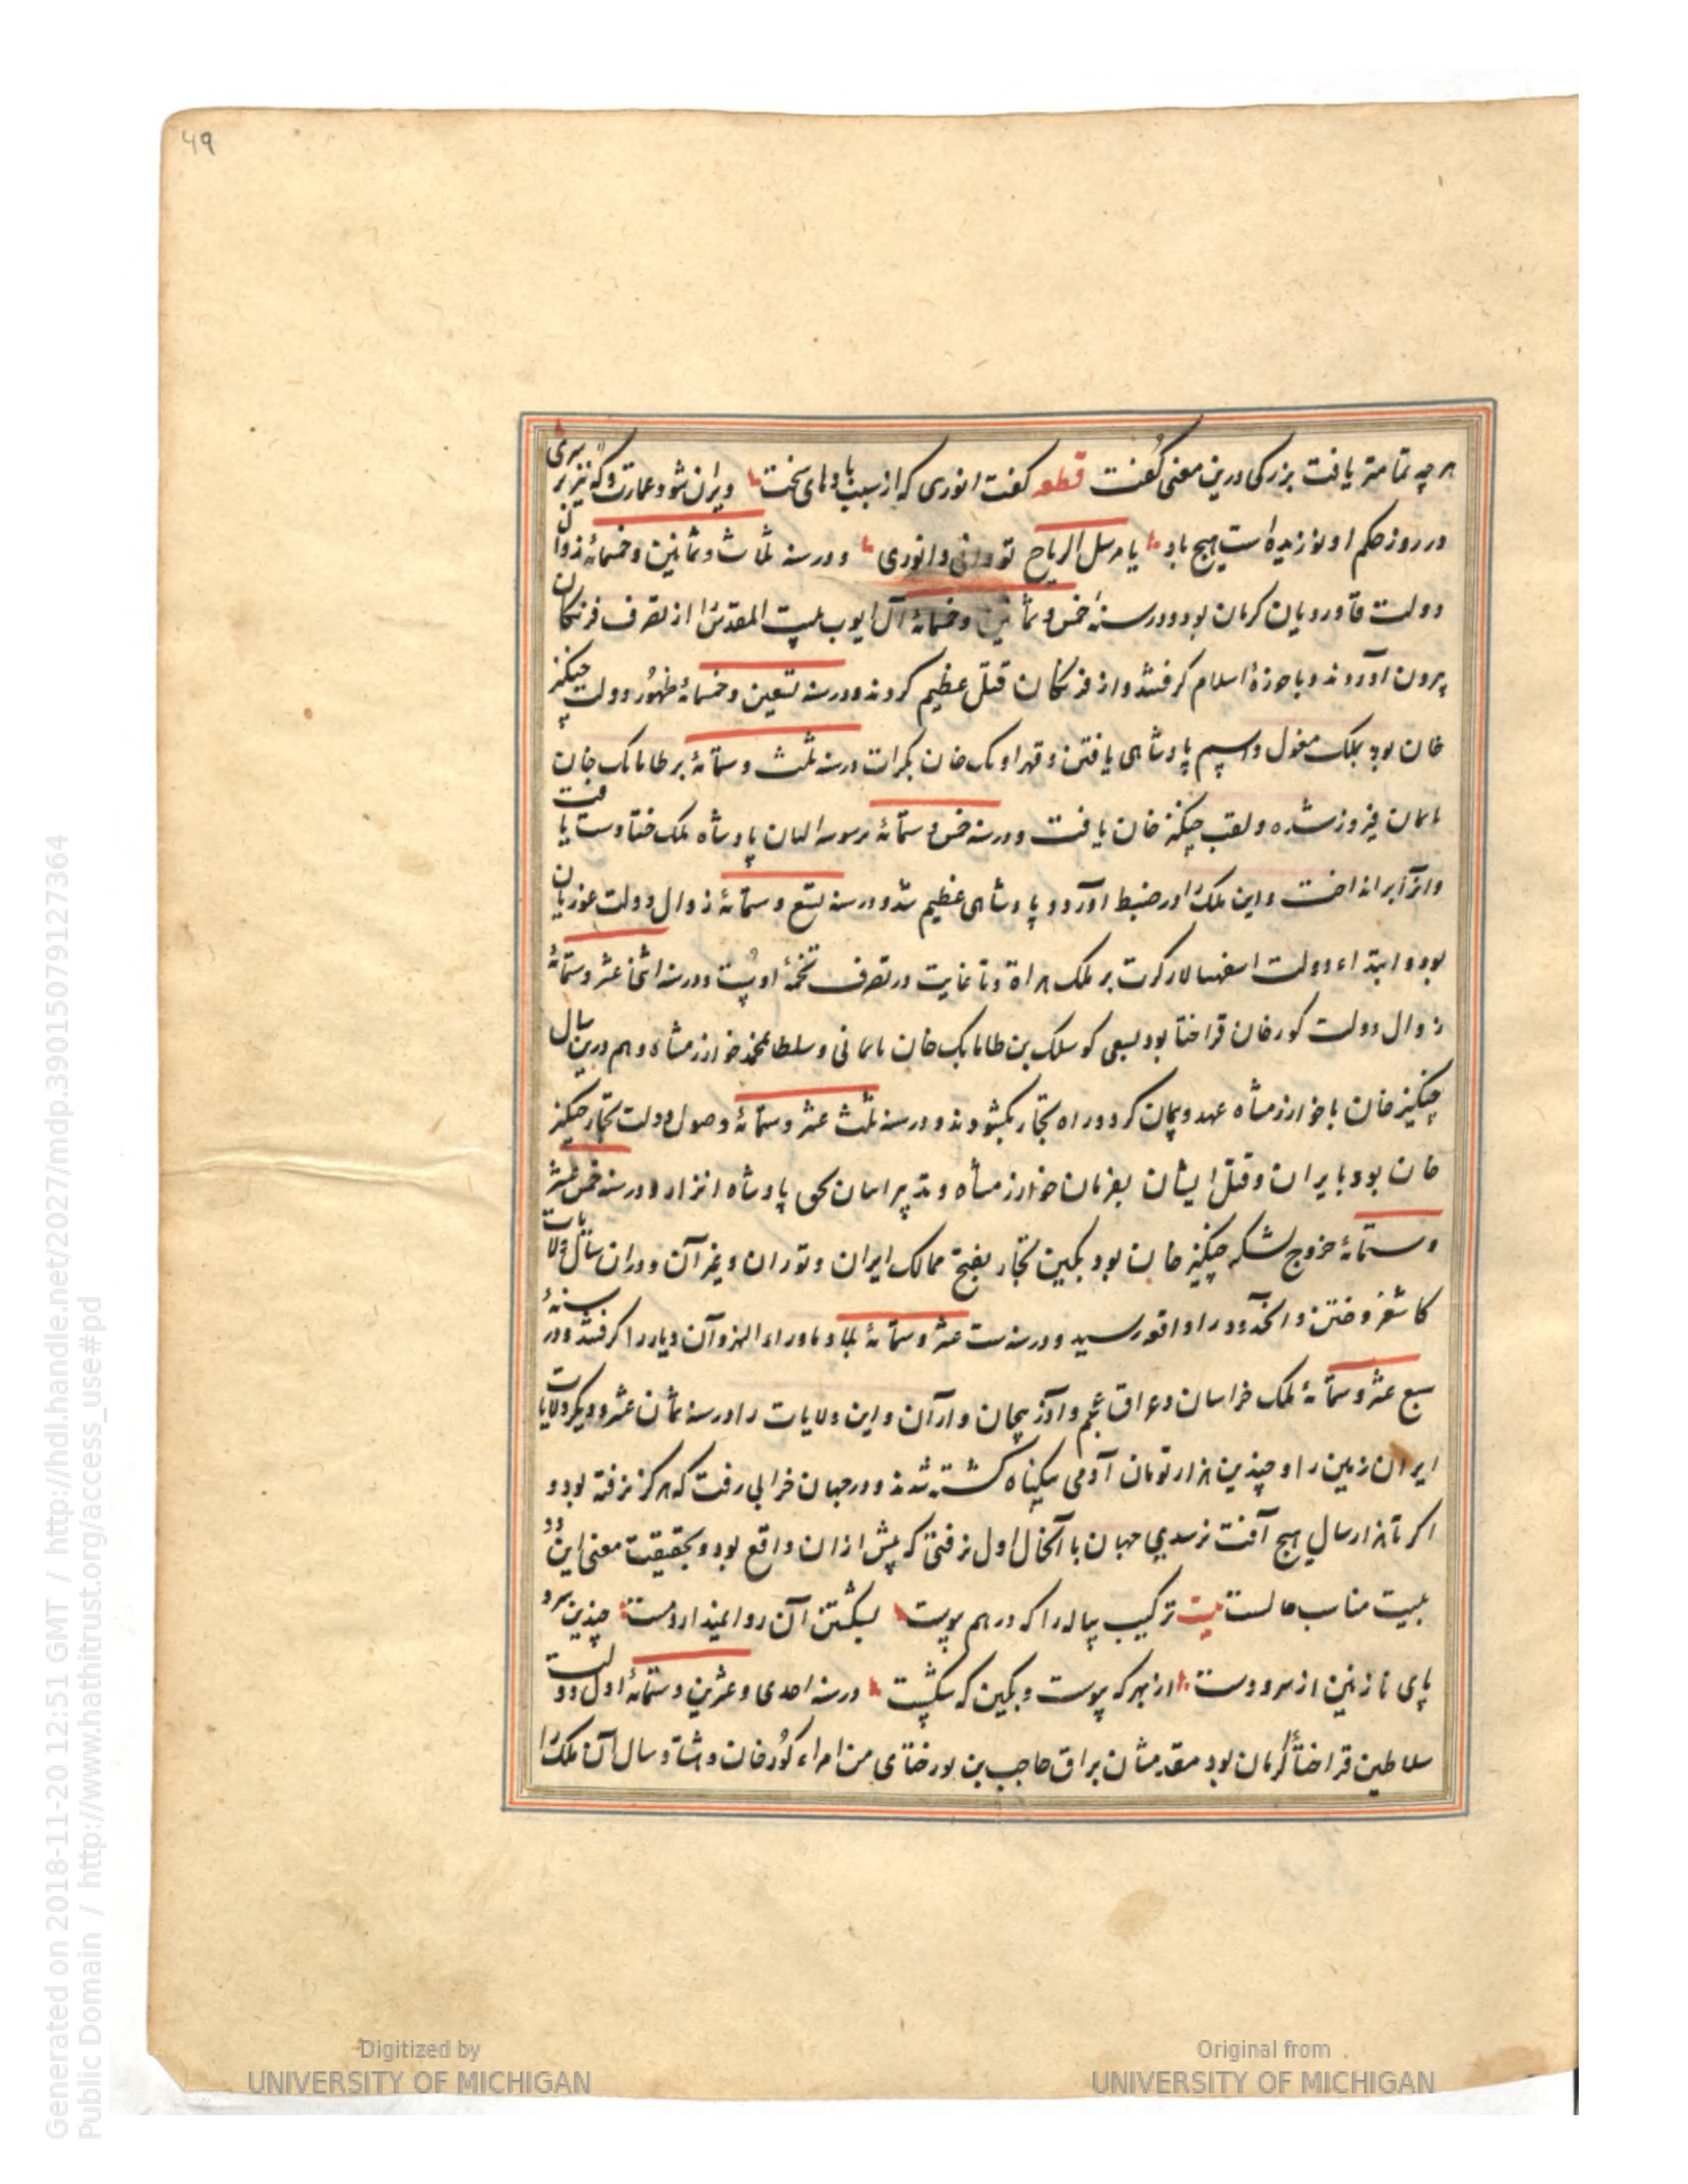 49
هر چه تمامتر یافت بزرکی درین معنی کفت قطعه کفت انوری که از سبب بادهای سخت ویران شود عمارت و که نیز بر سری
در روز حکم او نوزیده است هیچ باد یا مرسل الریاح تو دانی و انوری و در سنه ثلاث و ثمانین و خمسمائة زوال
دولت قاوردیان کرمان بود و در سنهٔ خمس و ثمانین و خمسمائة آل ایوب بیت المقدس را از تصرف فرنکان
بیرون آوردند و با حوزهٔ اسلام کرفتند و از فرنکان قتل عظیم کردند و در سنه تسعین و خمسمائة ظهور دولت چنکیز
خان بود بملک مغول و اسم پادشاهی یافتن و قهر اونک خان کرات در سنه ثلث و ستمائة بر طایانک خان
نایمان فیروز شده و لقب چنکیز خان یافت و در سنه خمس و ستمائة پادشاه ملک ختا دست یافت
و او را برانداخت و این ملک را در ضبط آورد و پادشاهی عظیم شد و در سنه تسع و ستمائة زوال دولت غوریان
بود و ابتداء دولت اسفهسالار کرت بر ملک هراة و تا غایت در تصرف تخمهٔ اوست و در سنه اثنا عشر و ستمائة
زوال دولت کورخان قراختا بود بسعی کوسلک بن طایانک خان نایمانی و سلطان محمد خوارزمشاه و هم درین سال
چنکیز خان با خوارزمشاه عهد و پیمان کرد و راه تجار بکشودند و در سنه ثلث عشر و ستمائة وصول دولت تجار چنکیز
خان بود بایران و قتل ایشان بفرمان خوارزمشاه و تدبیر پادشاه اترار و در سنه خمس عشر
و ستمائة خروج لشکر چنکیز خان بود بکین تجار بفتح ممالک ایران و توران و غیر آن و در آن سال ولایات
کاشغر و ختن و در سنه ست عشر و ستمائة بلاد ماوراء النهر و آن دیار را کرفتند و در سنهٔ
سبع عشر و ستمائة ملک خراسان و عراق عجم و آذربیجان و ارّان و این ولایات را و در سنه ثمان عشر و دیکر ولایات
ایران زمین را و چندین هزار تومان آدمی بیکناه کشته شدند و در جهان خرابی رفت که هرکز نرفته بود و
اکر تا هزار سال هیچ آفت نرسدی جهان با آنحال اول نرفتی که پیش ازان واقع بود و بحقیقت معنی این دو
بیت مناسب حالست بیت ترکیب پیاله را که درهم پیوست بشکستن آن روا نمیدارد مست چندین سر و
پای نازنین از سر و دست از مهر که پیوست و بکین که شکست در سنه احدی و عشرین و ستمائة اول دولت
سلاطین قراختا کرمان بود مقدمشان براق حاجب بن من امراء کورخان و هشتاد سال آن ملک را
Generated on 2018-11-20 12:51 GMT / http://hdl.handle.net/2027/mdp.39015079127364
Public Domain / http://www.hathitrust.org/access_use#pd
Digitized by
UNIVERSITY OF MICHIGAN
Original from
UNIVERSITY OF MICHIGAN